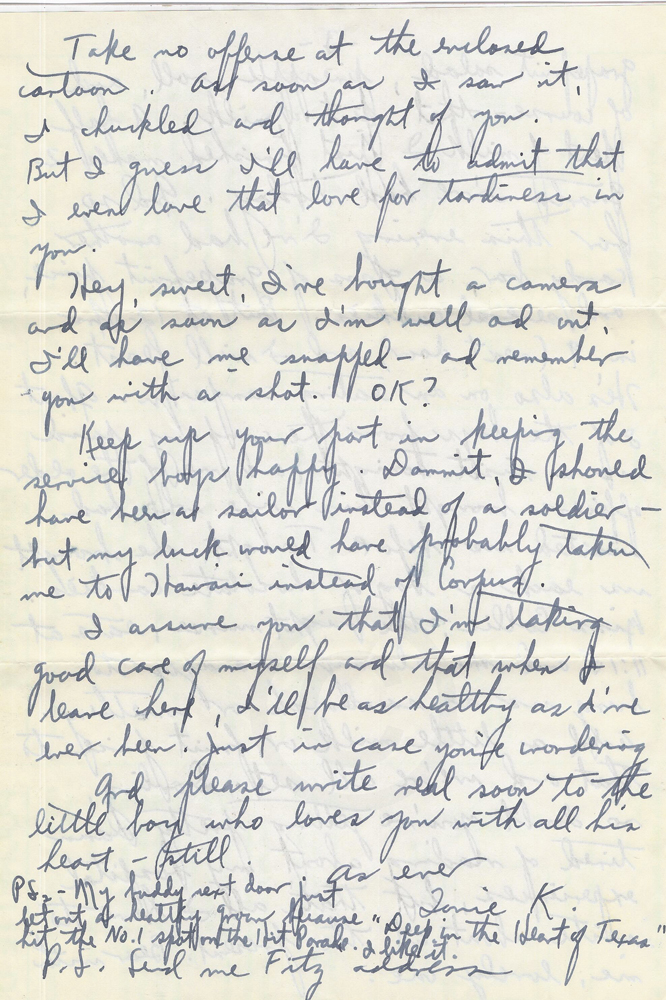 Take no offense at the enclosed
cartoon. As soon as I saw it,
I chuckled and thought of you.
But I guess I'll have to admit that
I even love that love for tardiness in
you.
Hey, sweet, I've bought a camera
and as soon as I'm well and out,
I'll have me snapped - and remember
you with a shot. OK?
Keep up your part in keeping the
service boys happy. Dammit, I should
have been a sailor instead of a soldier -
but my luck would have probably taken
me to Hawaii instead of Corpus.
I assure you that I'm taking
good care of myself and that when I
leave here, I'll be as healthy as I've
ever been. Just in case you're wondering
And please write real soon to the
little boy who loves you with all his
heart - still.
As ever
K
PS2 - My buddy next door just
let out a healthy groan because "Deep in the Heart of Texas"
hit the No. 1 spot on the Hit Parade. I like it.
P.S. Send me Fitz address